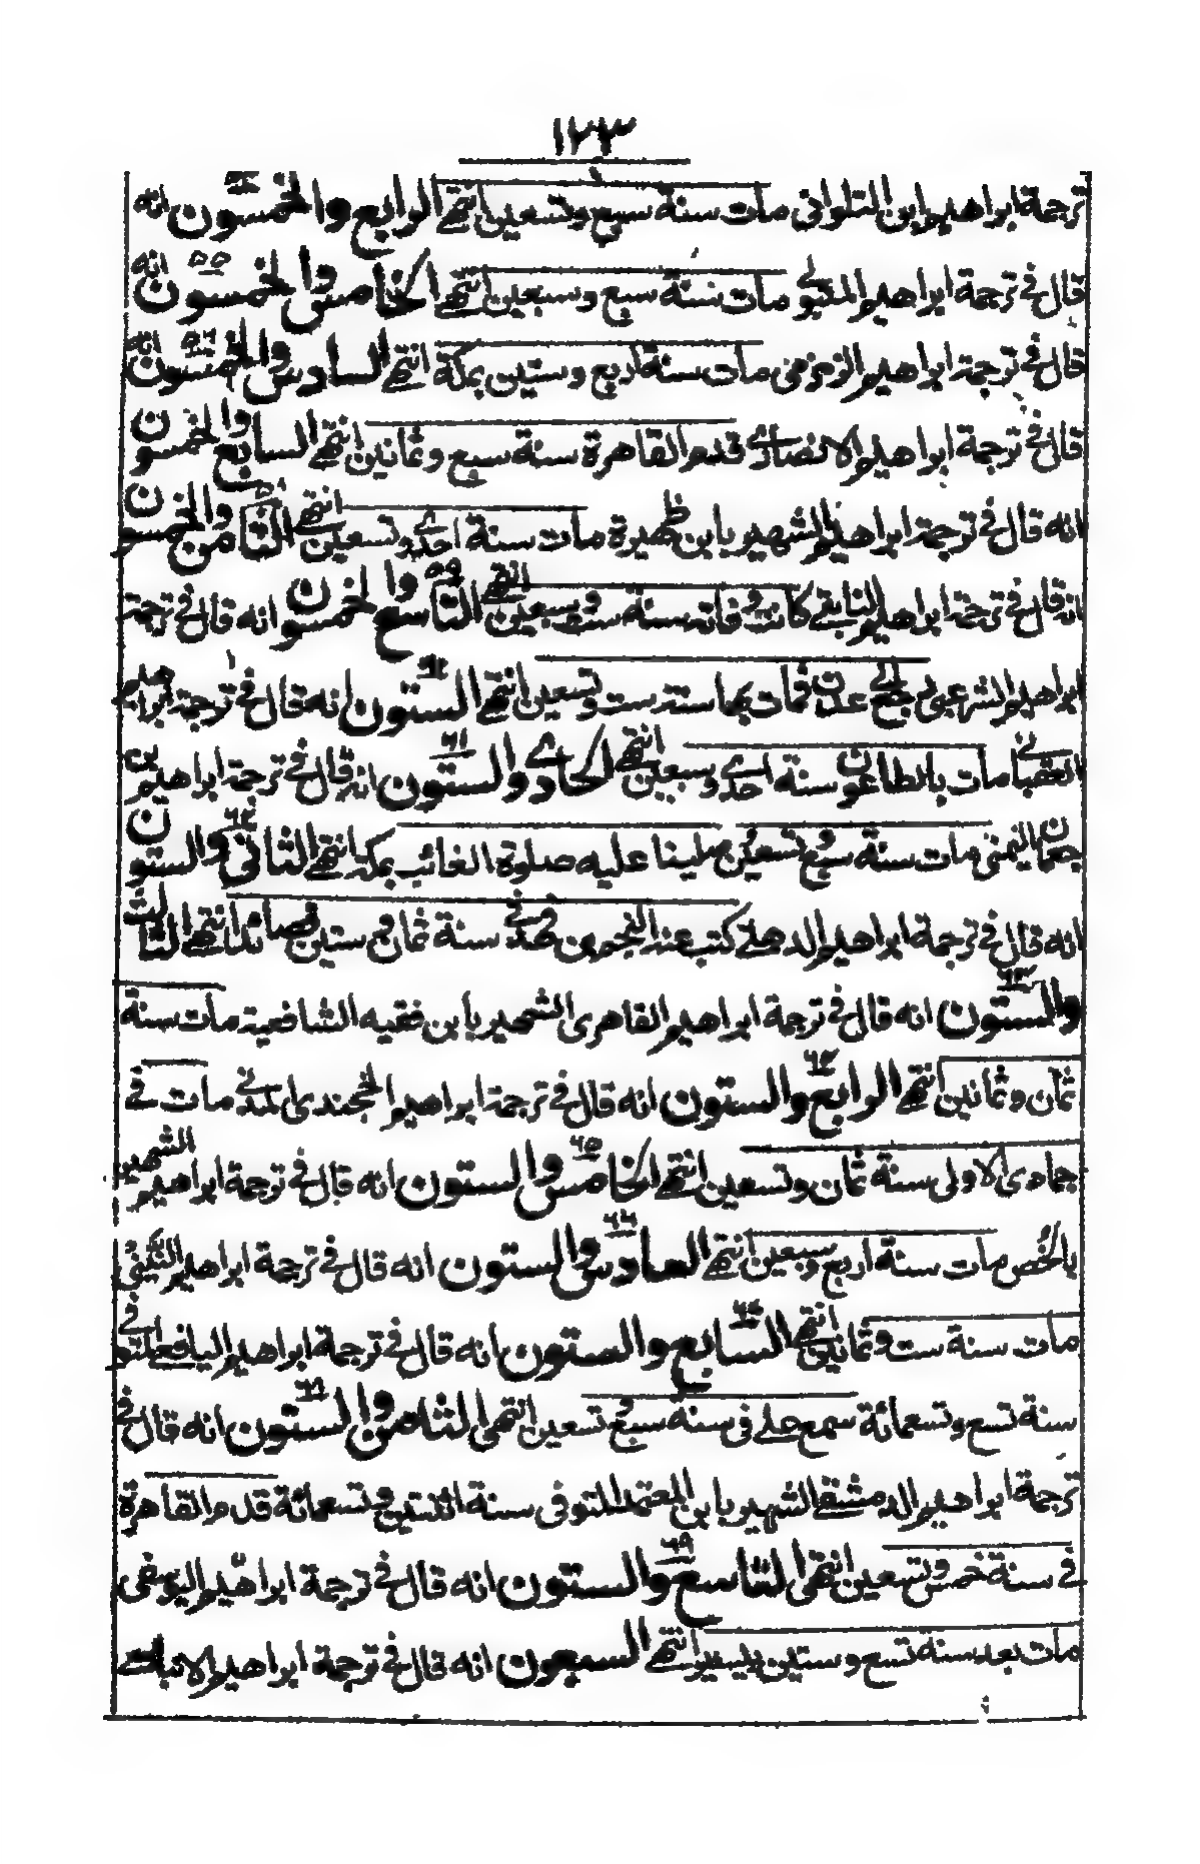 ١٢٣
ترجمة ابراهيم ابن التلواني مات سنة سبع وتسعين انتهى الرابع والخمسون انه
قال في ترجمة ابراهيم المتبولي مات سنة سبع وسبعين انتهى الخامس والخمسون ٥٥ انه
قال في ترجمة ابراهيم الزمزمي مات سنة اربع وستين بمكة انتهى السادس والخمسون ٥٦ انه
قال في ترجمة ابراهيم الانصاري قدم القاهرة سنة سبع وثمانين انتهى السابع والخمسون
انه قال في ترجمة ابراهيم الشهير بابن ظهيرة مات سنة احدى وتسعين انتهى الثامن والخمسون ٥٨
انه قال في ترجمة ابراهيم النابتي كانت وفاته سنة ست وسبعين انتهى التاسع والخمسون ٥٩ انه قال في ترجمة
ابراهيم الشرعبي الى عدن فمات بها سنة ست وتسعين انتهى الستون انه قال في ترجمة ابراهيم
العقباني مات بالطاعون سنة احدى وسبعين انتهى الحادي والستون ٦١ انه قال في ترجمة ابراهيم بن
جعمان اليمني مات سنة سبع وتسعين صلينا عليه صلوة الغائب بمكة انتهى الثاني والستون ٦٢
انه قال في ترجمة ابراهيم الدهلي كتب عنه النجم بن فهد في سنة ثمان وستين انتهى الثالث
والستون ٦٣ انه قال في ترجمة ابراهيم القاهري الشهير بابن فقيه الشافعية مات سنة
ثمان وثمانين انتهى الرابع والستون ٦٤ انه قال في ترجمة ابراهيم الخجندي المدني مات في
جمادى الاولى سنة ثمان وتسعين انتهى الخامس والستون ٦٥ انه قال في ترجمة ابراهيم الشهير
بالخص مات سنة اربع وسبعين انتهى السادس والستون ٦٦ انه قال في ترجمة ابراهيم
مات سنة ست وثمانين انتهى السابع والستون ٦٧ انه قال في ترجمة ابراهيم اليافعي المتوفى
سنة تسع وتسعمائة سمع علي في سنة سبع وتسعين انتهى الثامن والستون ٦٨ انه قال في
ترجمة ابراهيم الدمشقي الشهير بابن المعتمد المتوفى سنة اثنتين وتسعمائة قدم القاهرة
في سنة خمس وتسعين انتهى التاسع والستون ٦٩ انه قال في ترجمة ابراهيم اليوسفي
مات بعد سنة تسع وستين بيسير انتهى السبعون انه قال في ترجمة ابراهيم